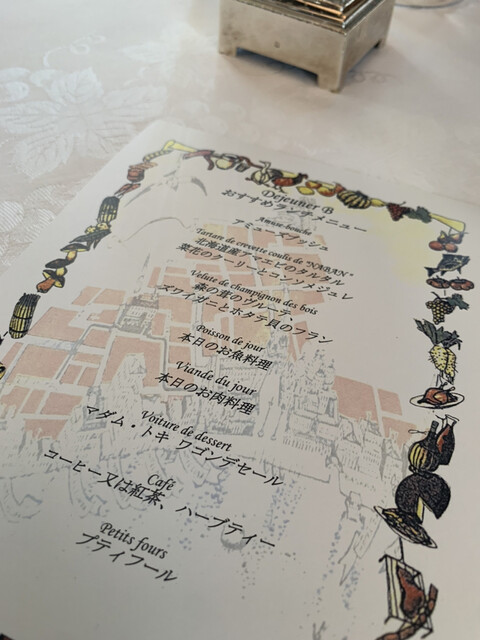 Dejeuner B
おすすめランチメニュー
Amuse-bouche
アミューズブッシュ
Tartare de crevette coulis de "NABANA"
北海道産アマエビのタルタル
菜花のクーリーとコンソメジュレ
Velute de champignon des bois
森の茸のヴルーテ、
ズワイガニとホタテ貝のフラン
Poisson de jour
本日のお魚料理
Viande du jour
本日のお肉料理
Voiture de dessert
マダム・トキ ワゴンデセール
Café
コーヒー又は紅茶、ハーブティー
Petits fours
プティフール